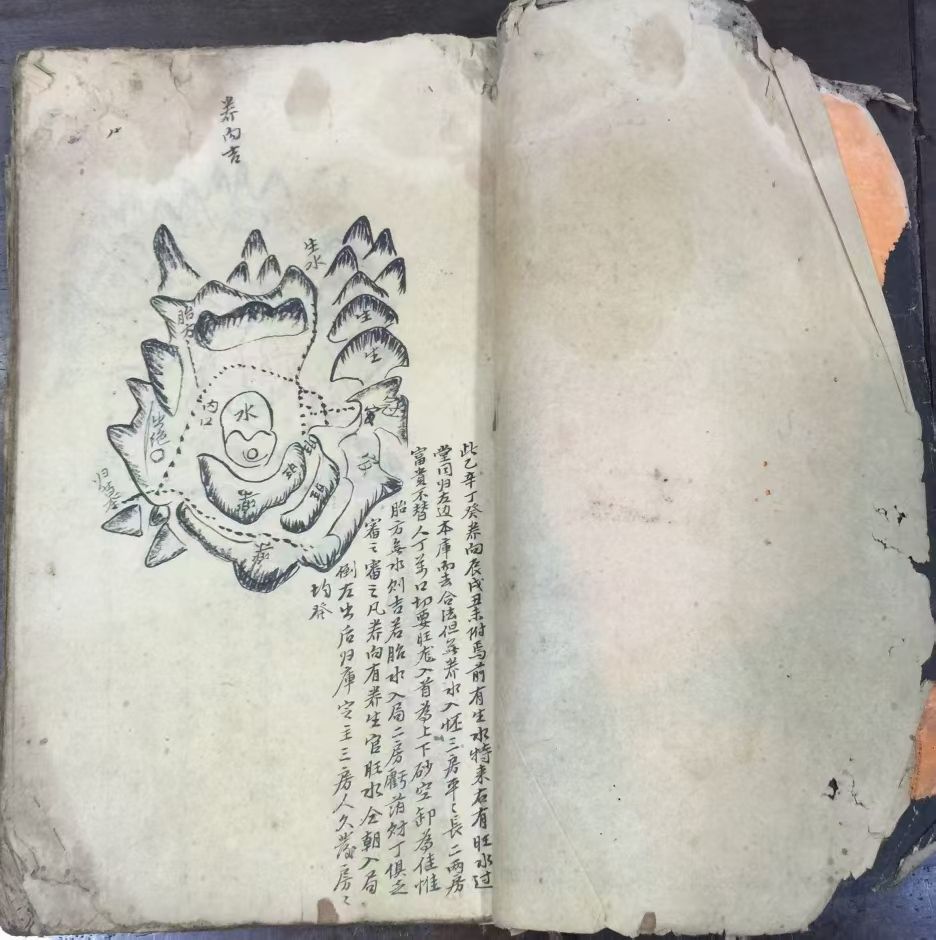 养向吉
生水
胎方
生
生
水
内口
出绝
归
此乙辛丁癸养向辰戌丑未附焉前有生水特来右有旺水过
堂同归左边本库而去合法但無养水入怀三房平〻長二两房
富貴不替人丁萬口切要旺龙入首為上下砂空卸為佳惟
胎方無水则吉若胎水入局二房虧落财丁俱乏
審〻審之凡养向有养生官旺水仝朝入局
倒左出后归庫定主三房人久發房〻
均發